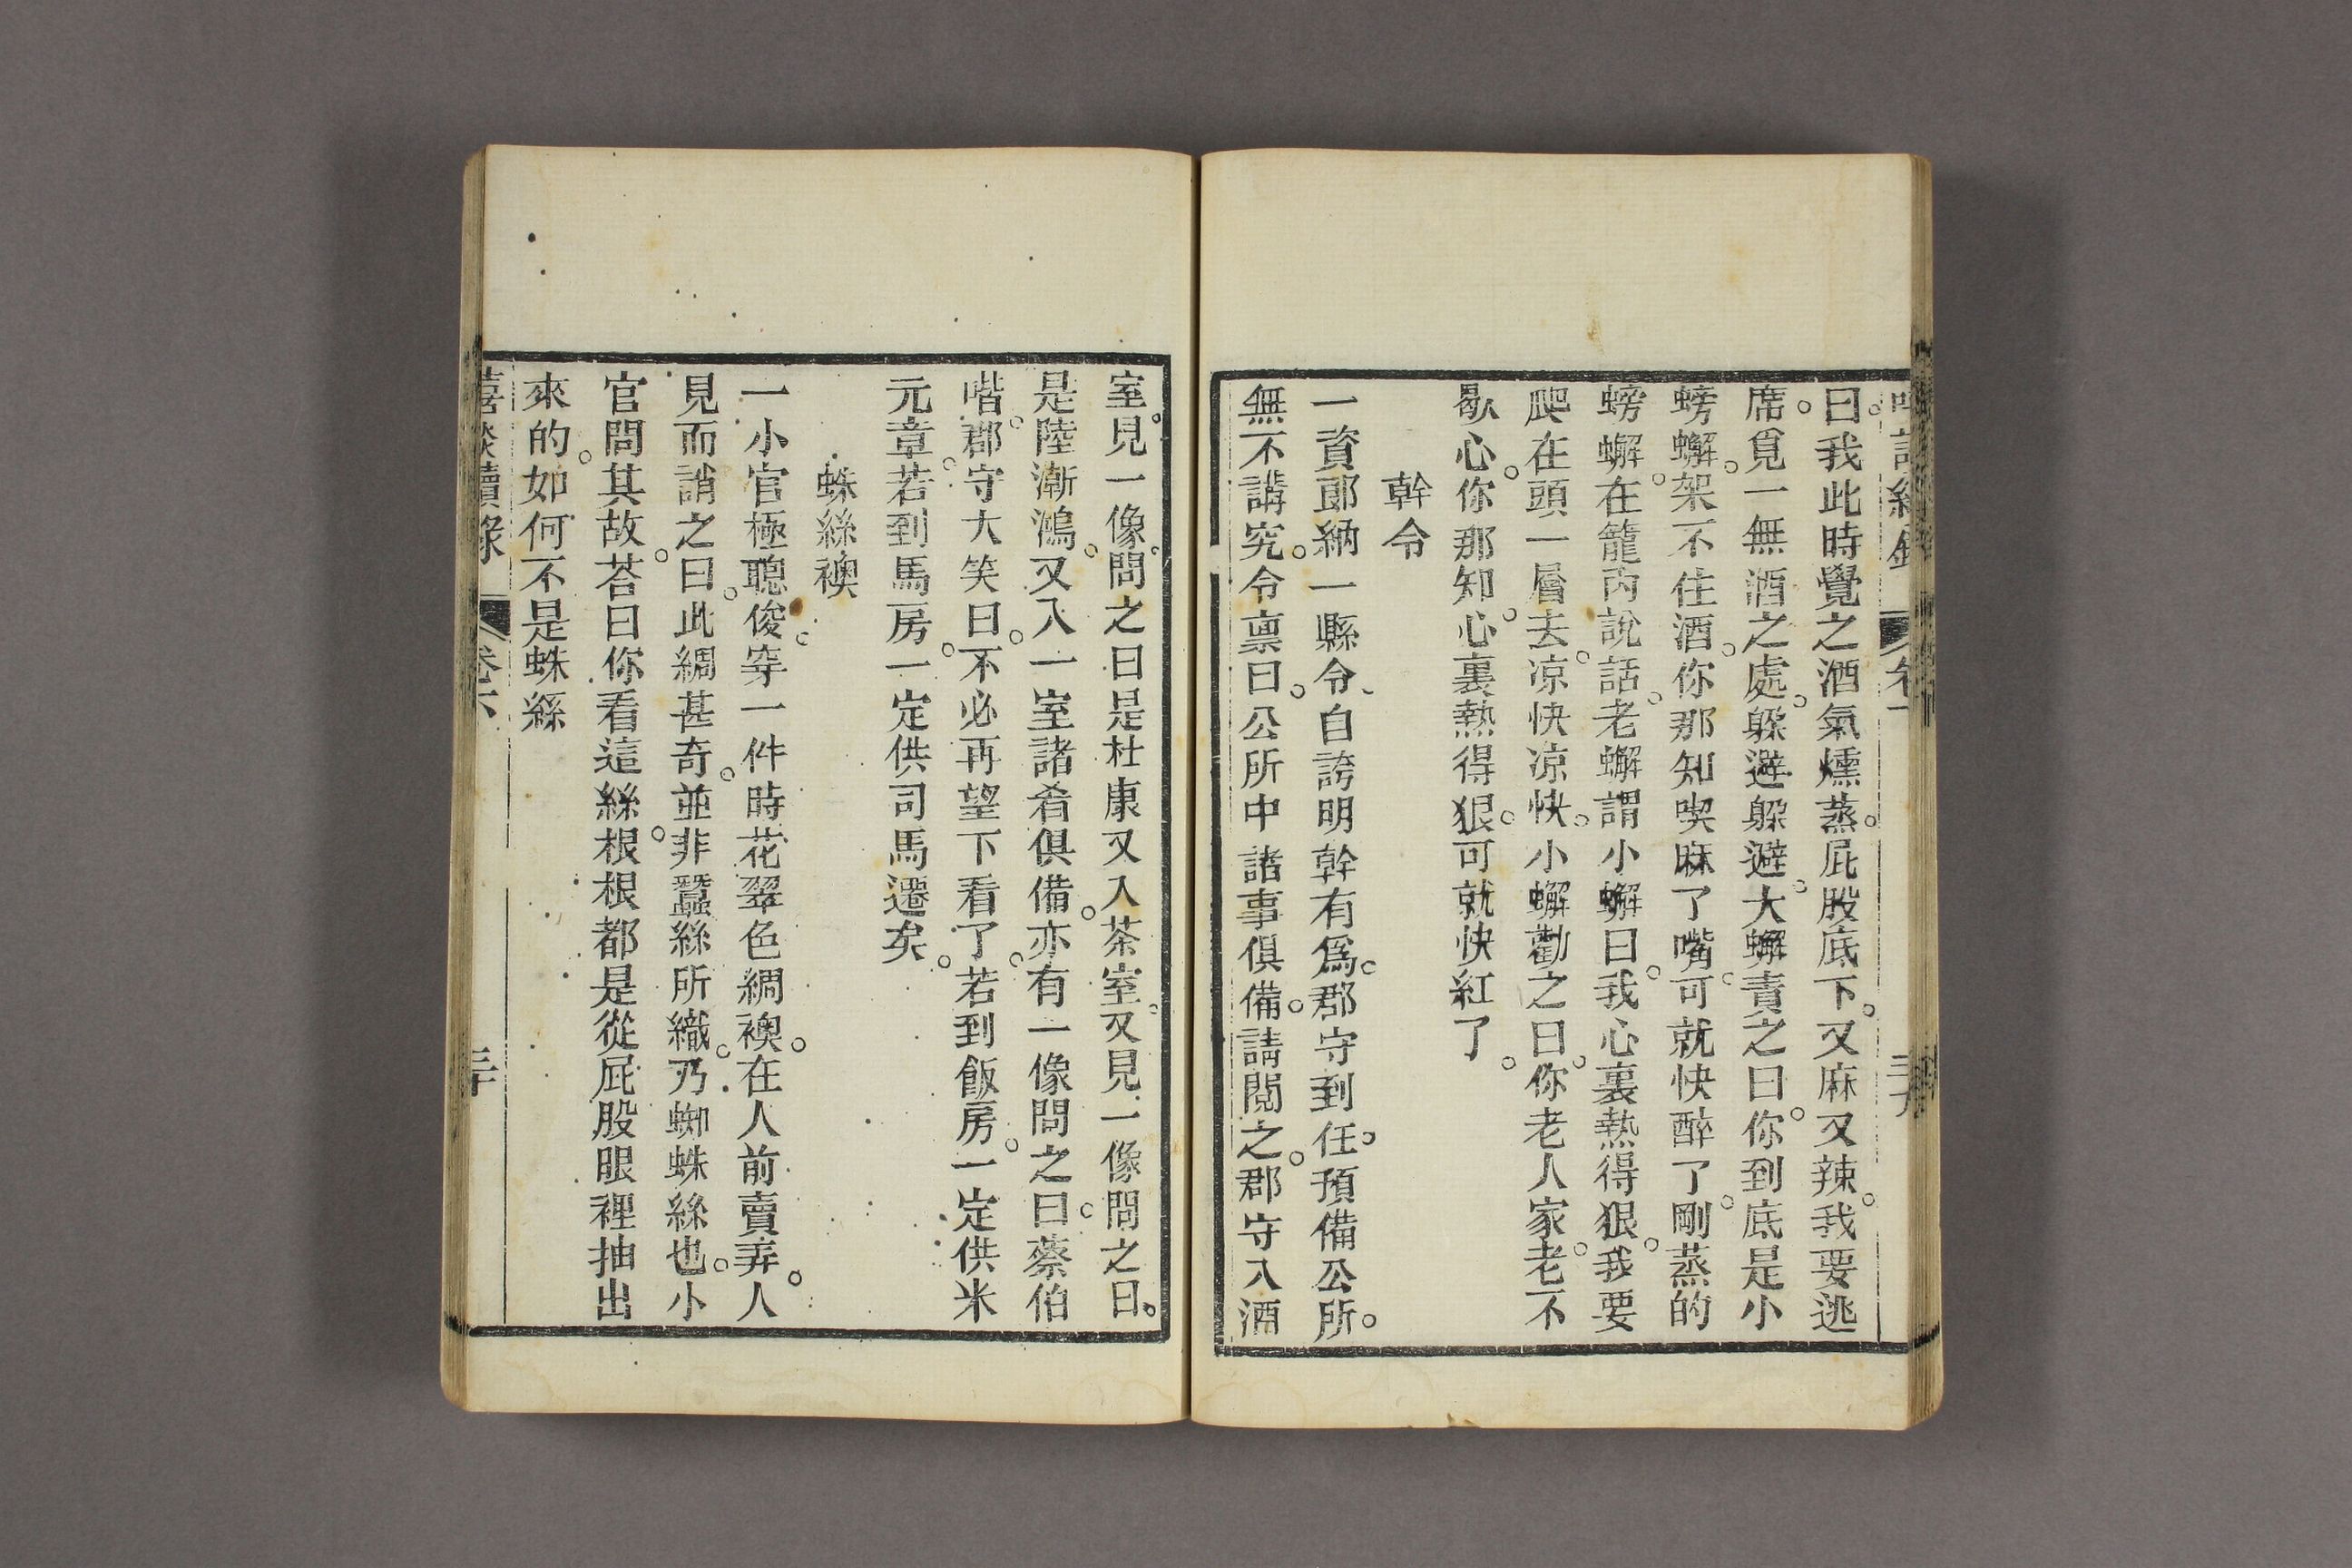 曰。我此時覺之酒氣燻蒸。屁股底下。又麻又辣。我要逃
席。覓一無酒之處。躱避躱避。大蠏責之曰。你到底是小
螃蠏。架不住酒。你那知喫麻了嘴。可就快醉了。剛蒸的
螃蠏。在籠內說話。老蠏謂小蠏曰。我心裏熱得狠。我要
爬在頭一層去。凉快凉快。小蠏勸之曰。你老人家老。不
歇心。你那知心。裏熱得狠。可就快紅了。
幹令
一資郞納一縣令、自誇明幹有爲。郡守到任。預備公所。
無不講究。令禀曰。公所中諸事俱備。請閱之。郡守入酒
室。見一像。問之曰是杜康又入茶室。又見一像問之曰。
是陸漸鴻。又入一室諸肴俱備。亦有一像問之曰。蔡伯
喈。郡守大笑曰。不必再望下看了。若到飯房。一定供米
元章。若到馬房。一定供司馬遷矣。
蛛絲襖
一小官極聰俊。穿一件時花翠色綢襖。在人前賣弄。人
見而誚之曰。此綢甚奇。並非蠶絲所織。乃蜘蛛絲也。小
官問其故。荅曰你看這絲。根根都是從屁股眼裡抽出
來的。如何不是蛛絲
喜談續錄 卷六 三十